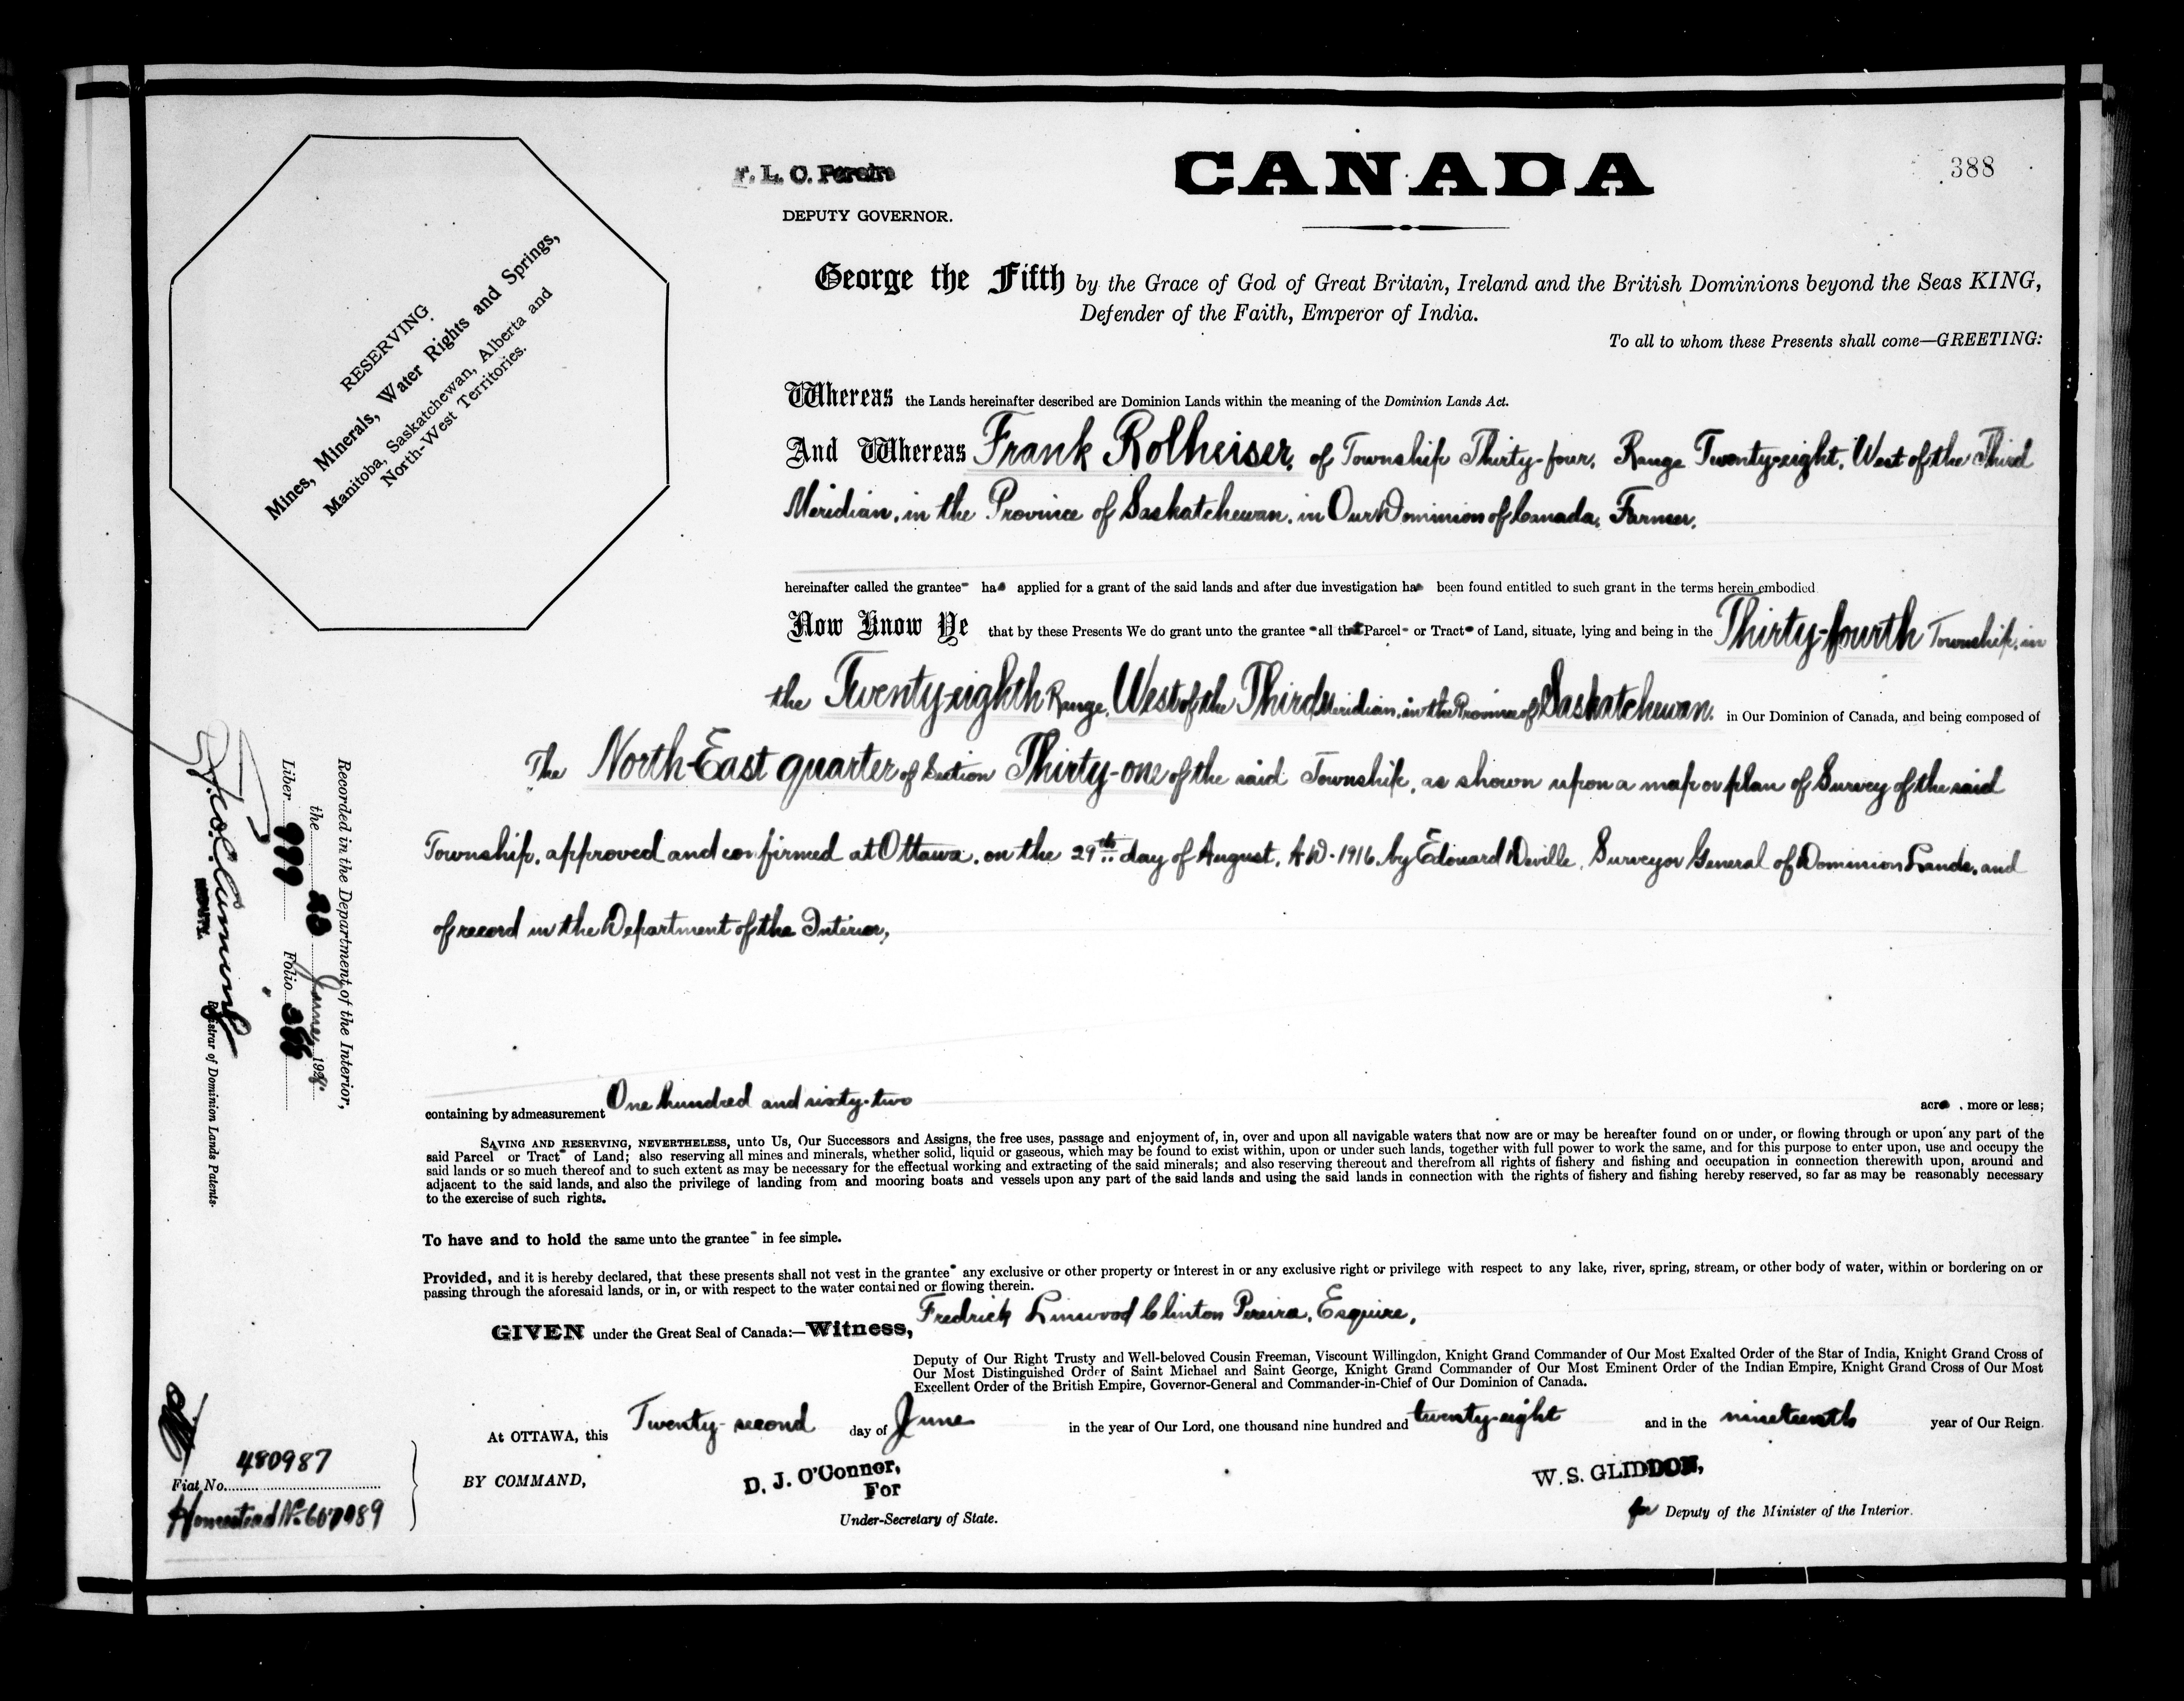 388
CANADA
F. L. C. Pereira
DEPUTY GOVERNOR.
George the Fifth by the Grace of God of Great Britain, Ireland and the British Dominions beyond the Seas KING,
Defender of the Faith, Emperor of India.
To all to whom these Presents shall come—GREETING:
RESERVING
Mines, Minerals, Water Rights and Springs,
Manitoba, Saskatchewan, Alberta and
North-West Territories.
Whereas the Lands hereinafter described are Dominion Lands within the meaning of the Dominion Lands Act.
And Whereas Frank Rolheiser, of Township Thirty-four, Range Twenty-eight, West of the Third
Meridian, in the Province of Saskatchewan, in Our Dominion of Canada, Farmer,
hereinafter called the grantee has applied for a grant of the said lands and after due investigation has been found entitled to such grant in the terms herein embodied
Now Know Ye that by these Presents We do grant unto the grantee all that Parcel or Tract of Land, situate, lying and being in the Thirty-fourth Township, in
the Twenty-eighth Range, West of the Third Meridian, in the Province of Saskatchewan, in Our Dominion of Canada, and being composed of
The North-East quarter of Section Thirty-one of the said Township, as shown upon a map or plan of Survey of the said
Township, approved and confirmed at Ottawa, on the 29th day of August, A.D. 1916, by Edouard Deville, Surveyor General of Dominion Lands, and
of record in the Department of the Interior,
Recorded in the Department of the Interior,
the June 1928
Liber 999 Folio 388
Registrar of Dominion Lands Patents.
containing by admeasurement One hundred and sixty-two acre , more or less;
SAVING AND RESERVING, NEVERTHELESS, unto Us, Our Successors and Assigns, the free uses, passage and enjoyment of, in, over and upon all navigable waters that now are or may be hereafter found on or under, or flowing through or upon any part of the
said Parcel or Tract of Land; also reserving all mines and minerals, whether solid, liquid or gaseous, which may be found to exist within, upon or under such lands, together with full power to work the same, and for this purpose to enter upon, use and occupy the
said lands or so much thereof and to such extent as may be necessary for the effectual working and extracting of the said minerals; and also reserving thereout and therefrom all rights of fishery and fishing and occupation in connection therewith upon, around and
adjacent to the said lands, and also the privilege of landing from and mooring boats and vessels upon any part of the said lands and using the said lands in connection with the rights of fishery and fishing hereby reserved, so far as may be reasonably necessary
to the exercise of such rights.
To have and to hold the same unto the grantee in fee simple.
Provided, and it is hereby declared, that these presents shall not vest in the grantee any exclusive or other property or interest in or any exclusive right or privilege with respect to any lake, river, spring, stream, or other body of water, within or bordering on or
passing through the aforesaid lands, or in, or with respect to the water contained or flowing therein.
GIVEN under the Great Seal of Canada:—Witness, Fredrick Linwood Clinton Pereira, Esquire,
Deputy of Our Right Trusty and Well-beloved Cousin Freeman, Viscount Willingdon, Knight Grand Commander of Our Most Exalted Order of the Star of India, Knight Grand Cross of
Our Most Distinguished Order of Saint Michael and Saint George, Knight Grand Commander of Our Most Eminent Order of the Indian Empire, Knight Grand Cross of Our Most
Excellent Order of the British Empire, Governor-General and Commander-in-Chief of Our Dominion of Canada.
At OTTAWA, this Twenty-second day of June in the year of Our Lord, one thousand nine hundred and twenty-eight and in the nineteenth year of Our Reign.
BY COMMAND, D. J. O'Connor,
For
Under-Secretary of State.
W. S. GLIDDON,
for Deputy of the Minister of the Interior.
Fiat No. 480987
Homestead No.